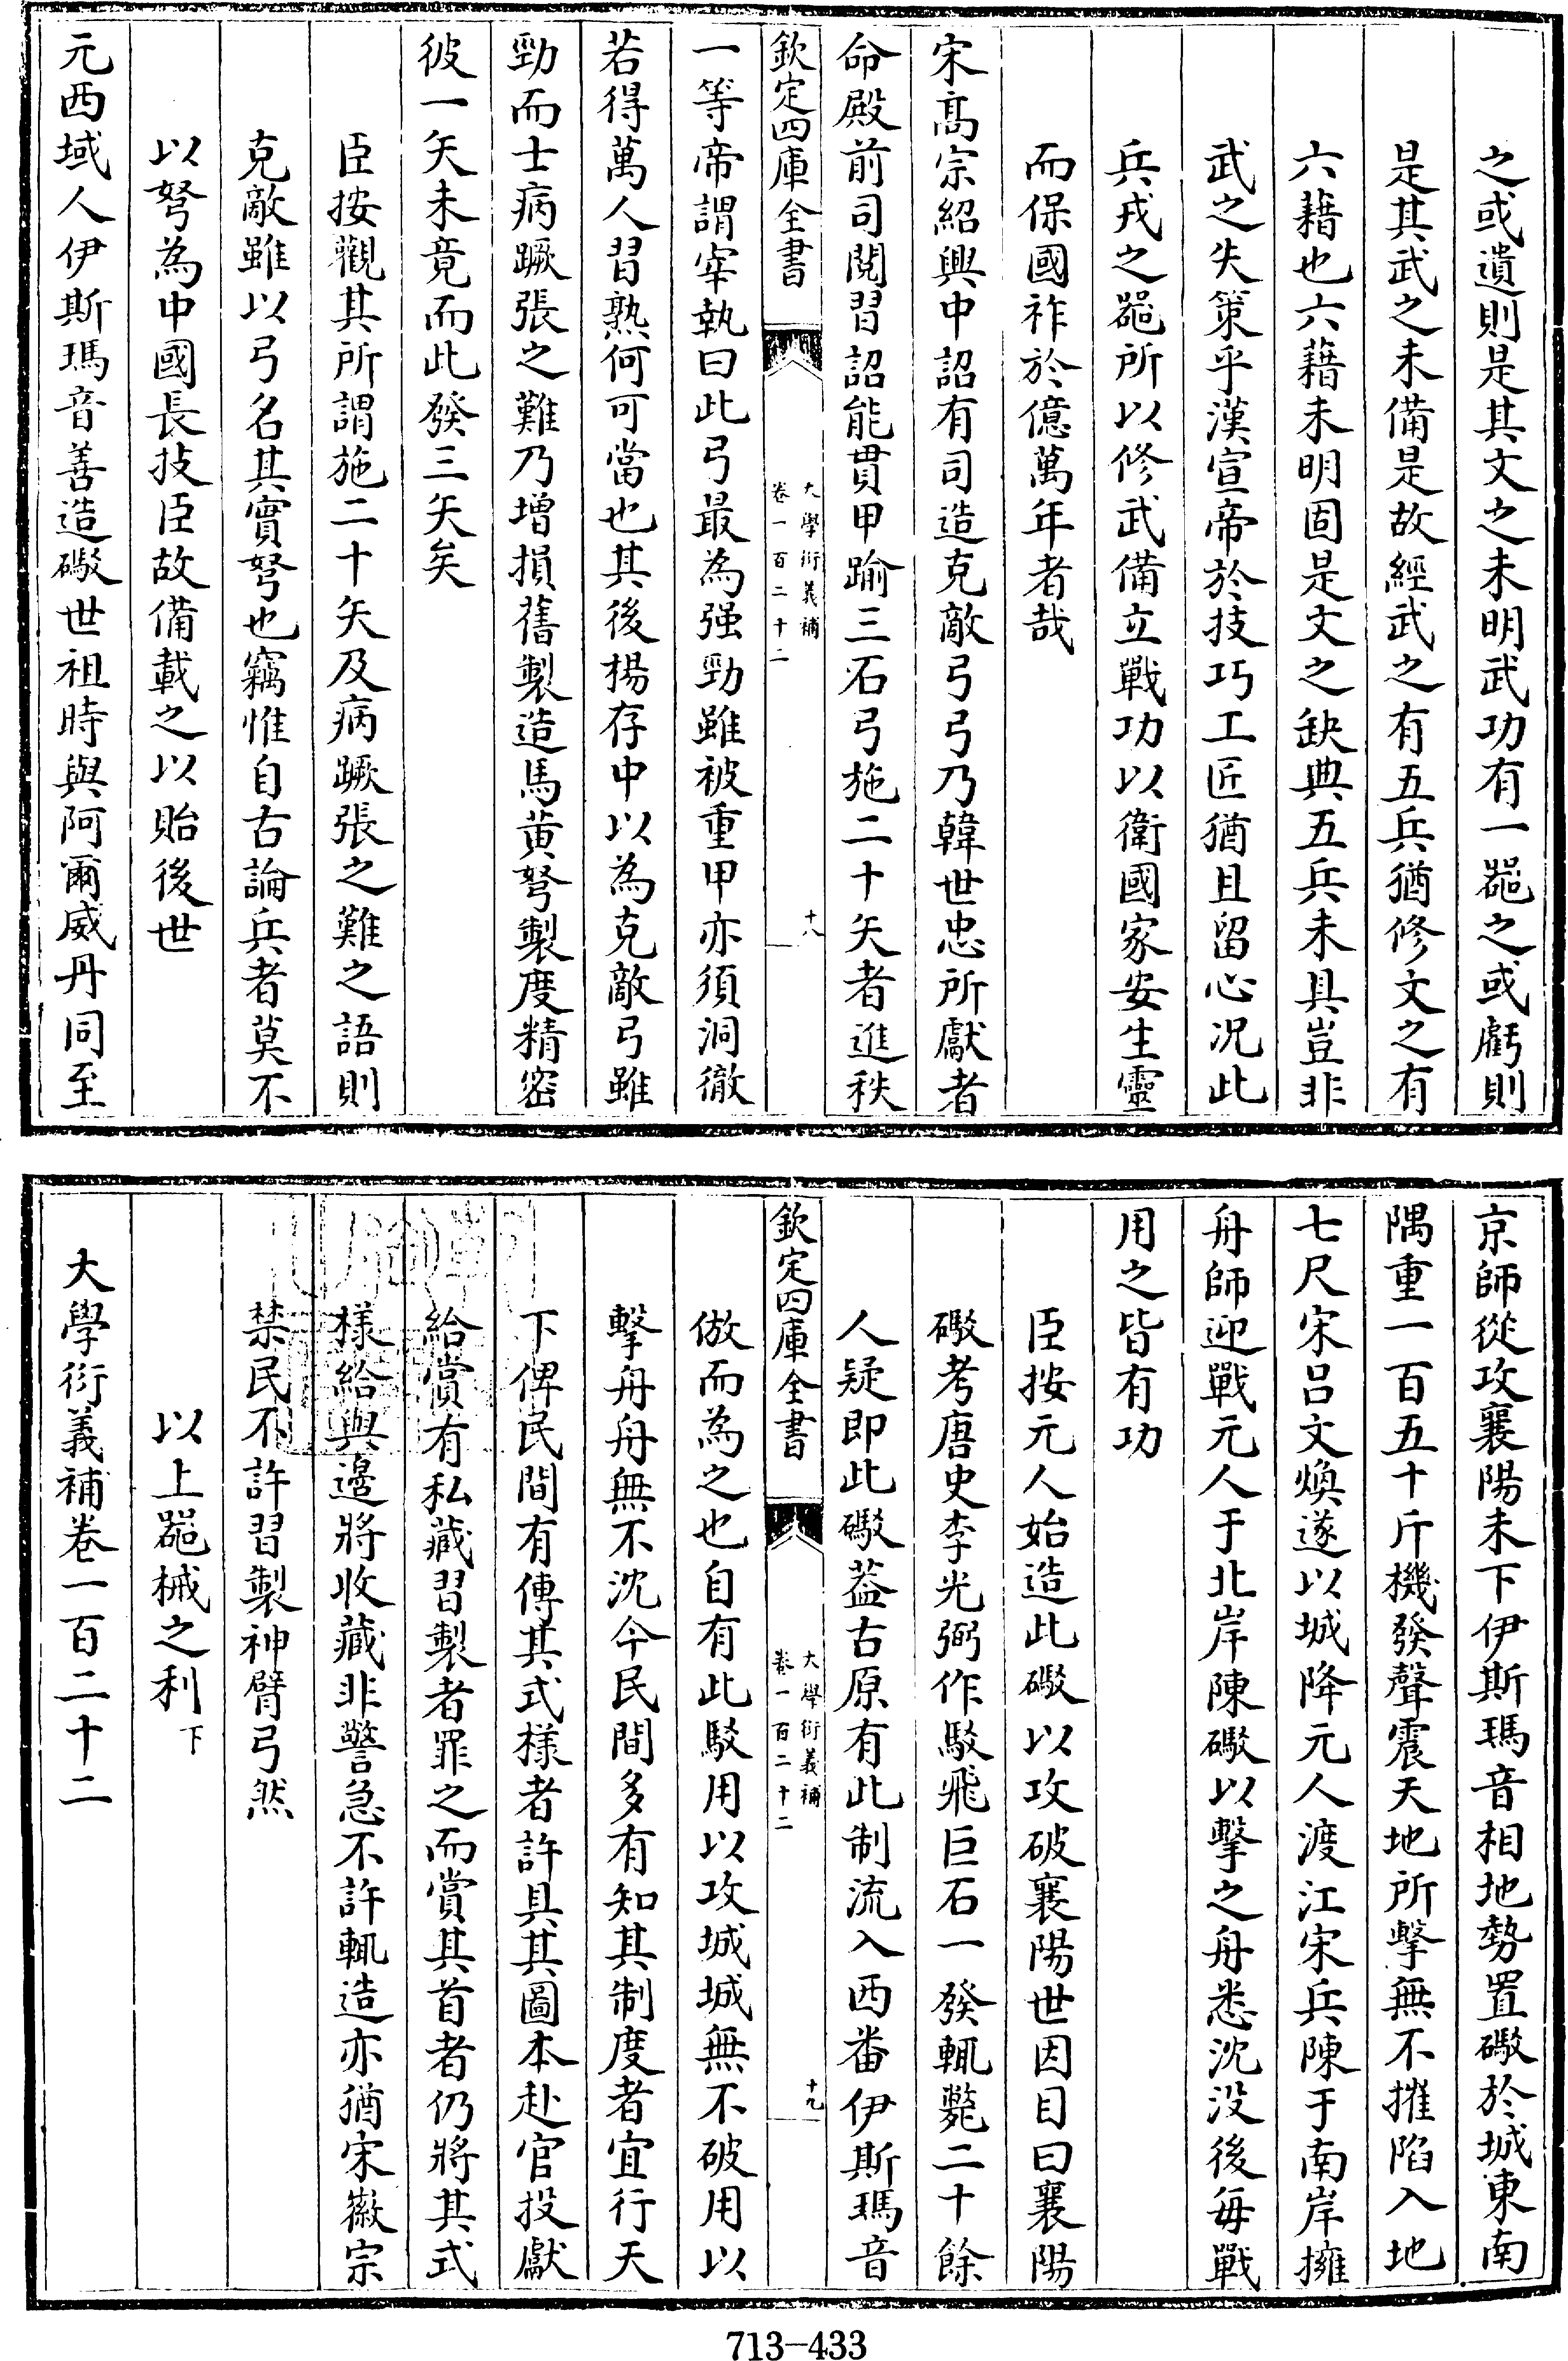 之或遺則是其文之未明武功有一噐之或虧則
是其武之未備是故經武之有五兵猶修文之有
六藉也六藉未明固是文之缺典五兵未具豈非
武之失策乎漢宣帝於技巧工匠猶且留心况此
兵戎之噐所以修武備立戰功以衛國家安生靈
而保國祚於億萬年者哉
宋髙宗紹興中詔有司造克敵弓弓乃韓世忠所獻者
命殿前司閱習詔能貫甲踰三石弓施二十矢者進秩
欽定四庫全書
大學衍義補
卷一百二十二
十八
一等帝謂宰執曰此弓最為强勁雖被重甲亦須洞徹
若得萬人習熟何可當也其後楊存中以為克敵弓雖
勁而士病蹶張之難乃增損舊製造馬黄弩製度精密
彼一矢未竟而此發三矢矣
臣按觀其所謂施二十矢及病蹶張之難之語則
克敵雖以弓名其實弩也竊惟自古論兵者莫不
以弩為中國長技臣故備載之以貽後世
元西域人伊斯瑪音善造礮世祖時與阿爾威丹同至
京師從攻襄陽未下伊斯瑪音相地勢置礮於城東南
隅重一百五十斤機發聲震天地所擊無不摧陷入地
七尺宋吕文煥遂以城降元人渡江宋兵陳于南岸擁
舟師迎戰元人于北岸陳礮以擊之舟悉沈没後每戰
用之皆有功
臣按元人始造此礮以攻破襄陽世因目曰襄陽
礮考唐史李光弼作駮飛巨石一發輒斃二十餘
人疑即此礮葢古原有此制流入西番伊斯瑪音
欽定四庫全書
大學衍義補
卷一百二十二
十九
倣而為之也自有此駮用以攻城城無不破用以
擊舟舟無不沈今民間多有知其制度者宜行天
下俾民間有傳其式様者許具其圖本赴官投獻
給賞有私藏習製者罪之而賞其首者仍將其式
樣給與邉將收藏非警急不許輒造亦猶宋徽宗
禁民不許習製神臂弓然
以上噐械之利下
大學衍義補卷一百二十二
713-433